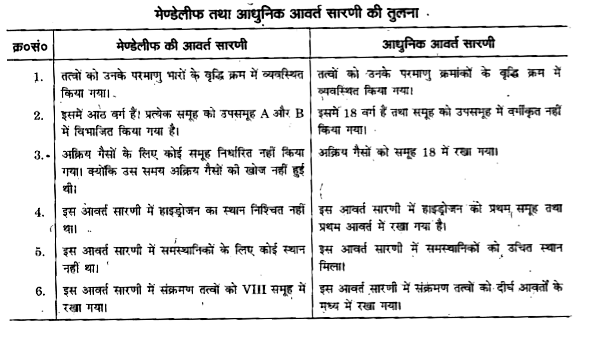 मेण्डेलीफ तथा आधुनिक आवर्त सारणी की तुलना
क्र०सं० मेण्डेलीफ की आवर्त सारणी आधुनिक आवर्त सारणी
1. तत्वों को उनके परमाणु भारों के वृद्धि क्रम में व्यवस्थित तत्वों को उनके परमाणु क्रमांकों के वृद्धि क्रम में
किया गया। व्यवस्थित किया गया।
2. इसमें आठ वर्ग हैं! प्रत्येक समूह को उपसमूह A और B इसमें 18 वर्ग हैं तथा समूह को उपसमूह में वर्गीकृत नहीं
में विभाजित किया गया है। किया गया।
3. अक्रिय गैसों के लिए कोई समूह निर्धारित नहीं किया अक्रिय गैसों को समूह 18 में रखा गया।
गया। क्योंकि उस समय अक्रिय गैसों को खोज नहीं हुई
थी।
4. इस आवर्त सारणी में हाइड्रोजन का स्थान निश्चित नहीं इस आवर्त सारणी में हाइड्रोजन को प्रथम समूह तथा
था। प्रथम आवर्त में रखा गया है।
5. इस आवर्त सारणी में समस्थानिकों के लिए कोई स्थान इस आवर्त सारणी में समस्थानिकों को उचित स्थान
नहीं था। मिला।
6. इस आवर्त सारणी में संक्रमण तत्वों को VIII समूह में इस आवर्त सारणी में संक्रमण तत्वों को दीर्घ आवर्तों के
रखा गया। मध्य में रखा गया।